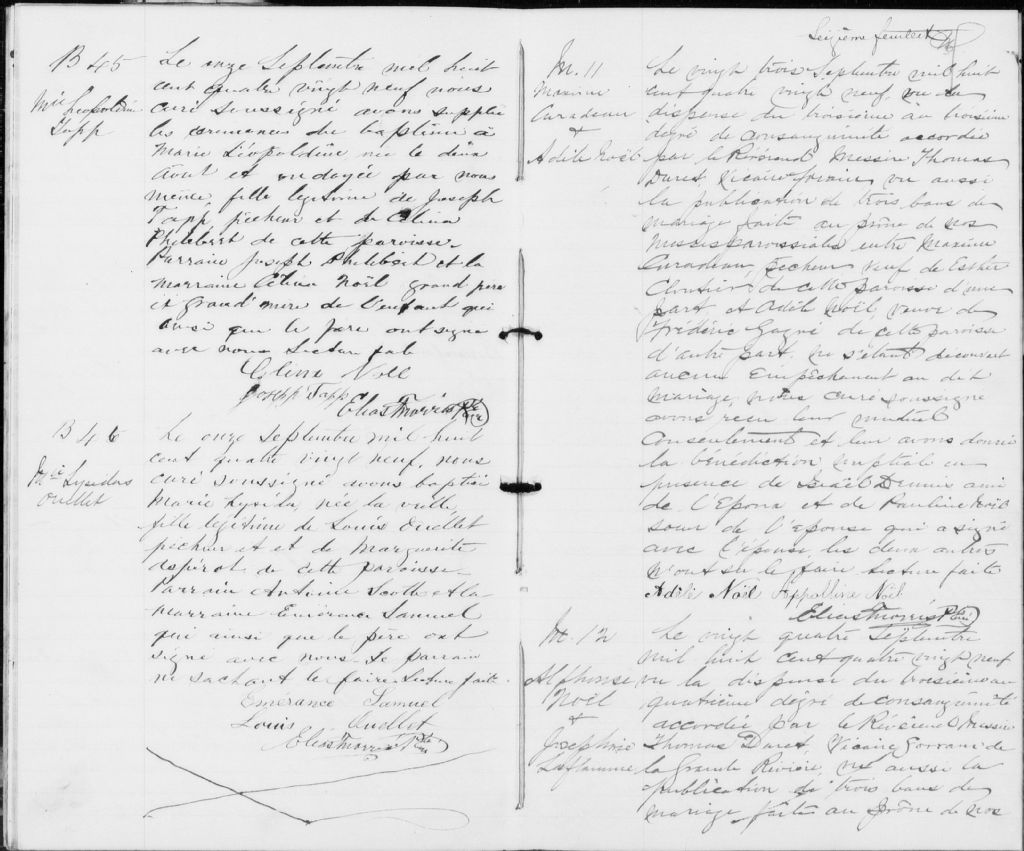 B 45
Mie Leopoldine
Tapp
Le onze Septembre mil huit
cent quatre vingt neuf nous
curé soussigné avons supplée
les ceremonies du baptême à
Marie Léopoldine née le deux
Aout et ondoyée par nous
même, fille legitime de Joseph
Tapp pêcheur et de Célina
Philibert de cette paroisse.
Parrain Joseph Philibert et la
marraine Célina Noël grand pere
et grand'mere de l'enfant qui
ainsi que le pere ont signé
avec nous Lecture faite
Celina Noll
Joseph Tapp
Elias Morris Ptre
B 46
Mie Lysidas
Ouellet
Le onze Septembre mil huit
cent quatre vingt neuf, nous
curé soussigné avons baptisé
Marie Lysida, née la veille,
fille legitime de Louis Ouellet
pêcheur et et de Marguerite
despirot de cette paroisse.
Parrain Antoine Scotte et la
marraine Emérance Samuel
qui ainsi que le père ont
signé avec nous. Le parrain
ne sachant le faire. Lecture faite.
Emérance Samuel
Louis Ouellet
Elias Morris Ptre
Seizième feuillet
M. 11
Maxime
Curadeau
&
Adèle Noël
Le vingt trois Septembre mil huit
cent quatre vingt neuf, vu la
dispense du troisième au troisième
dégré de consanguinité accordée
par le Révérend Messire Thomas
Duret, Vicaire forain, vu aussi
la publication de trois bans de
mariage faite au prône de nos
messes paroissiales entre Maxime
Curadeau, pêcheur veuf de Esther
Cloutier de cette paroisse d'une
part et Adèle Noël, veuve de
Frédéric Gagné de cette paroisse
d'autre part, ne s'étant découvert
aucun Empêchement au dit
mariage, nous curé soussigné
avons reçu leur mutuel
Consentement et leur avons donné
la bénédiction nuptiale en
presence de Israël Dennis ami
de l'Epoux et de Pauline Noël
sœur de l'epouse qui a signé
avec l'épouse, les deux autres
n'ont su le faire Lecture faite
Adèle Noël Appolline Noël
Elias Morris Ptre
M. 12
Alphonse
Noël
&
Josephine
Laflamme
Le vingt quatre Septembre
mil huit cent quatre vingt neuf
vu la dispense du troisième au
quatrième dégré de consanguinité
accordée par le Révérend Messire
Thomas Duret, Vicaire Forrain de
la Grande Rivière, vu aussi la
publication de trois bans de
mariage faite au prône de nos